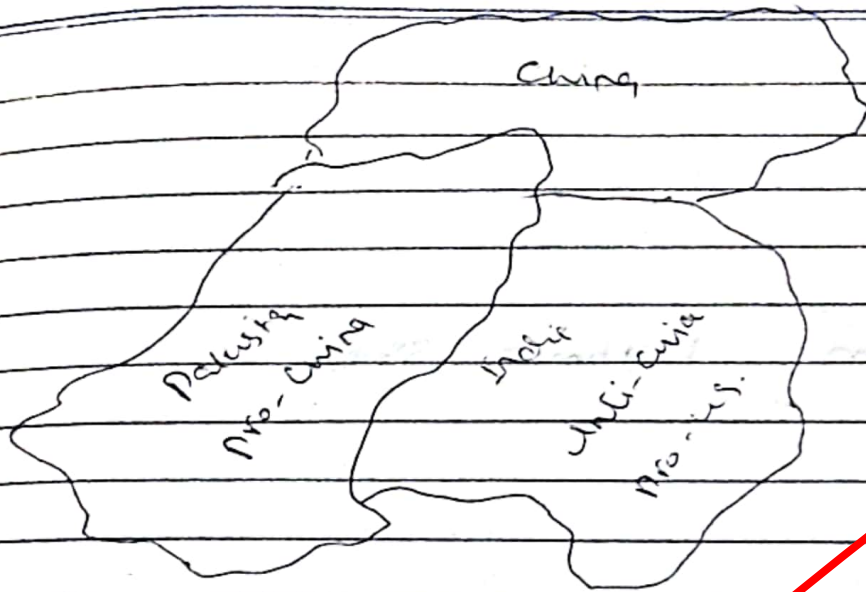 China
Pakistan
Pro-China
India
Anti-China
Pro-US.